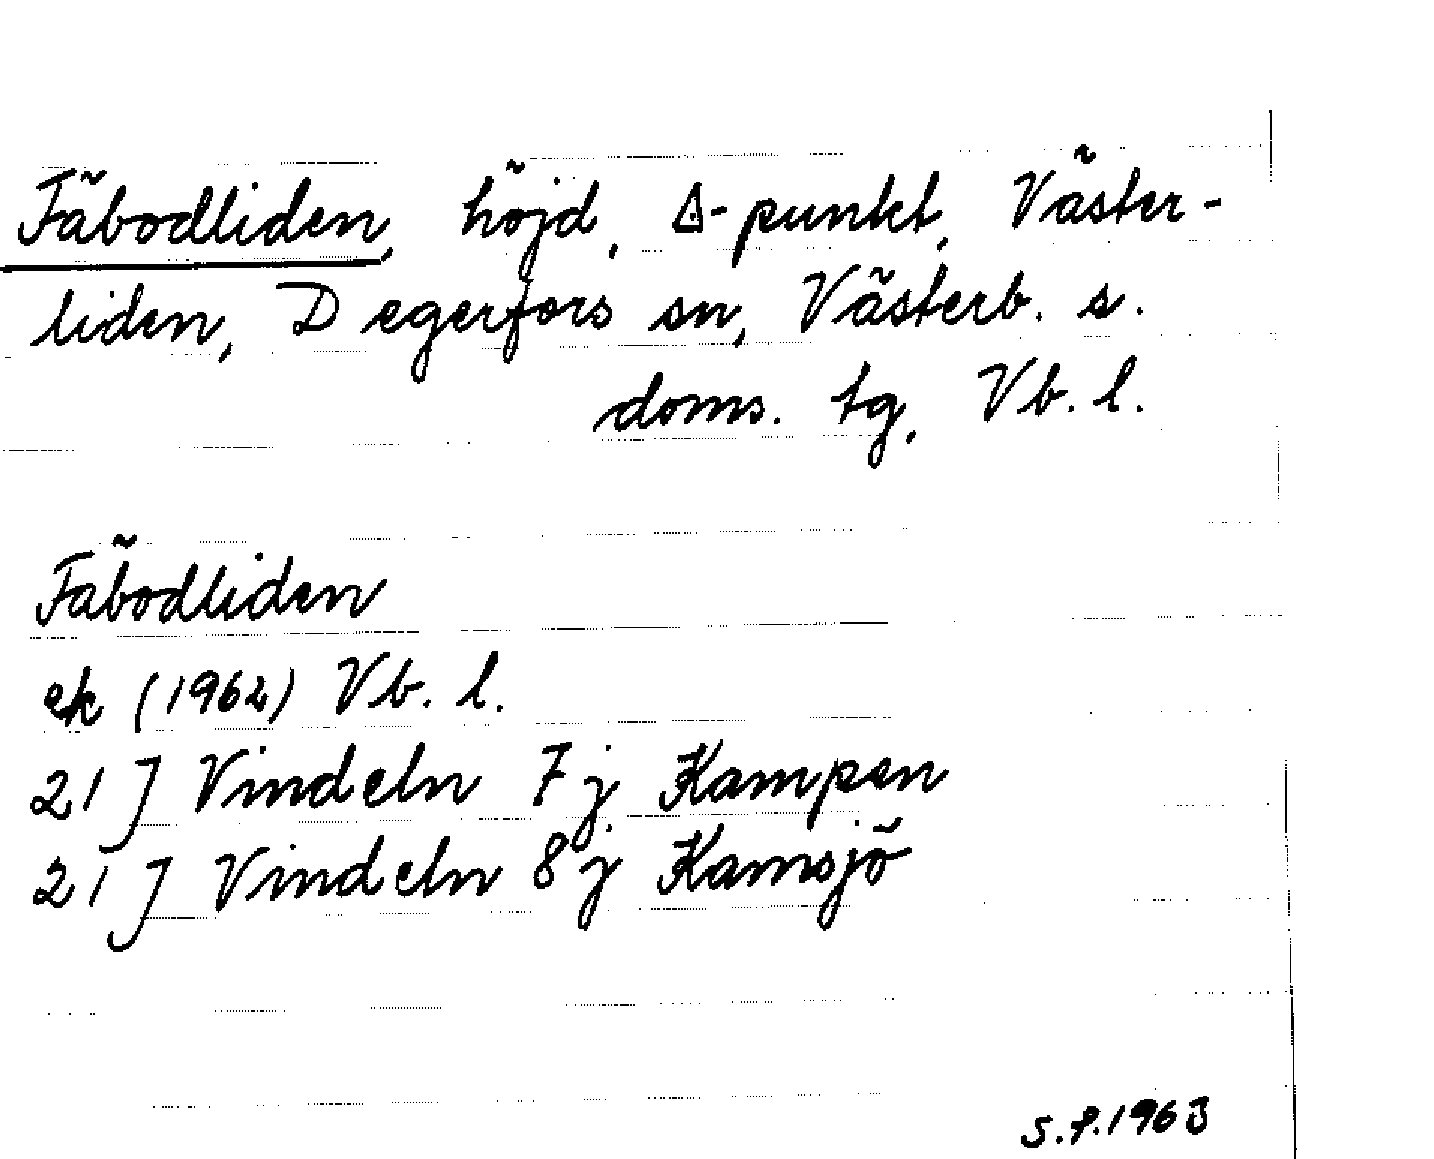 Fäbodliden, höjd, Δ-punkt, Väster-
liden, Degerfors sn, Västerb. s.
doms. tg, Vb. l.
Fäbodliden
ek (1962) Vb. l.
21 J Vindeln 7j Kampen
21 J Vindeln 8j Kamsjö
S.P. 1963